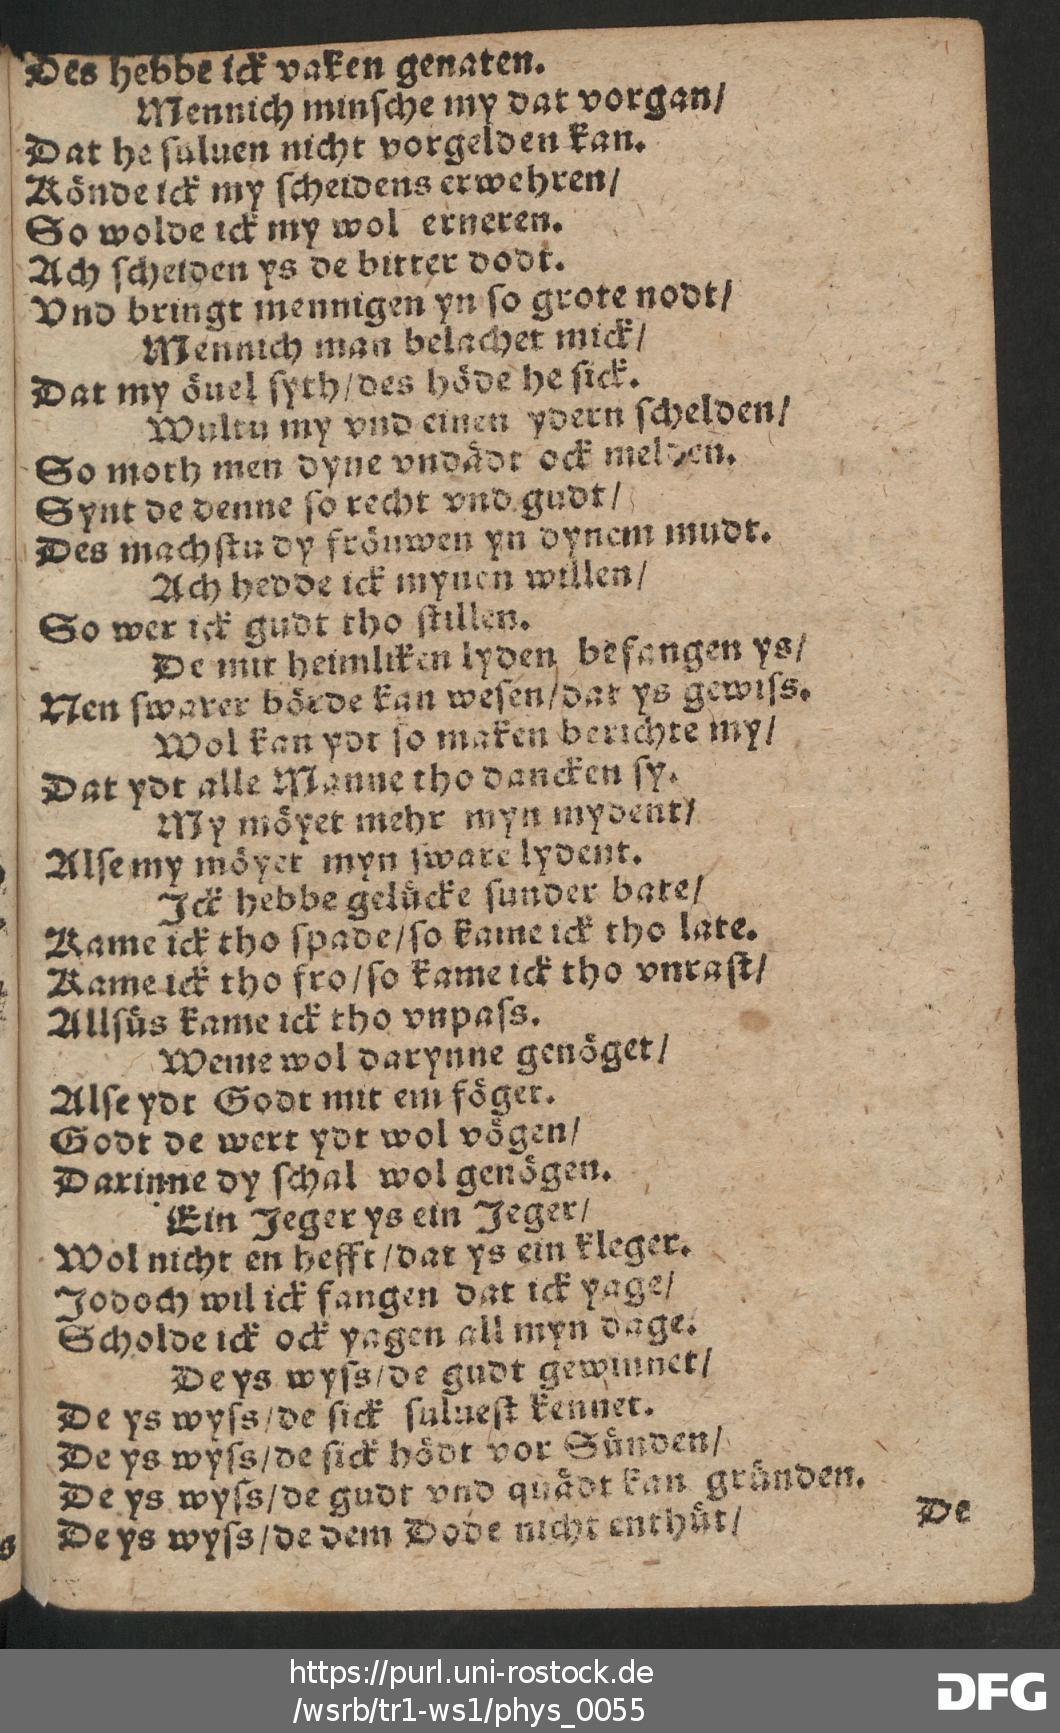 Des hebbe ick vaken genaten.
Mennich minsche my dat vorgan/
Dat he suluen nicht vorgelden kan.
Könde ick my scheidens erwehren/
So wolde ick my wol erneren.
Ach scheiden ys de bitter dodt.
Vnd bringt mennigen yn so grote nodt/
Mennich man belachet mick/
Dat my öuel syth/des höde he sick.
Wultu my vnd einen ydern schelden/
So moth men dyne vndädt ock melden.
Synt de denne so recht vnd gudt/
Des machstu dy fröuwen yn dynem mudt.
Ach hedde ick mynen willen/
So wer ick gudt tho stillen.
De mit heimliken lyden befangen ys/
Nen swarer börde kan wesen/dat ys gewiss.
Wol kan ydt so maken berichte my/
Dat ydt alle Manne tho dancken sy.
My möyet mehr myn mydent/
Alse my möyet myn sware lydent.
Ick hebbe gelücke sunder bate/
Kame ick tho spade/so kame ick tho late.
Kame ick tho fro/so kame ick tho vnrast/
Allsüs kame ick tho vnpass.
Weme wol darynne genöget/
Alse ydt Godt mit em föget.
Godt de wert ydt wol vögen/
Darinne dy schal wol genögen.
Ein Jeger ys ein Jeger/
Wol nicht en hefft/dat ys ein kleger.
Jodoch wil ick fangen dat ick yage/
Scholde ick ock yagen all myn dage.
De ys wyss/de gudt gewinnet/
De ys wyss/de sick suluest kennet.
De ys wyss/de sick hödt vor Sünden/
De ys wyss/de gudt vnd quädt kan gründen.
De ys wyss/de dem Dode nicht enthüt/
De
https://purl.uni-rostock.de
/wsrb/tr1-ws1/phys_0055
DFG